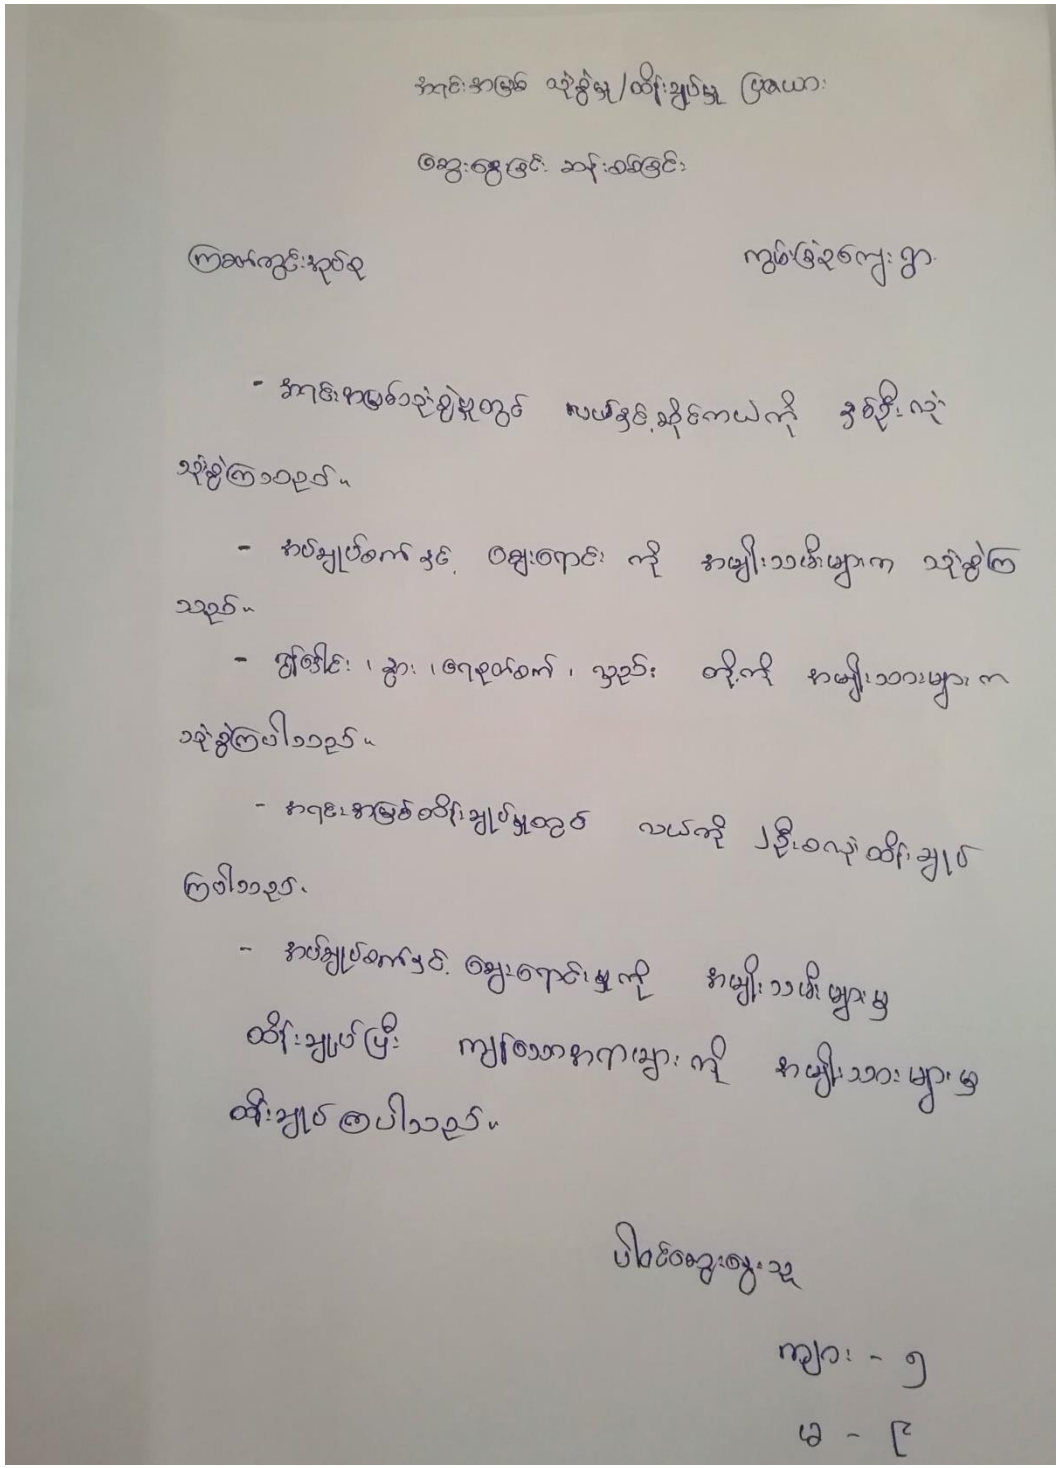 အရင်းအမြစ် သုံးစွဲမှု/ထိန်းချုပ်မှု ပြဇယား
ဆွေးနွေးခြင်း ဆန်းစစ်ခြင်း
ကြခတ်တွင်းအုပ်စု ကွမ်းခြံစုကျေးရွာ
- အရင်းအမြစ်သုံးစွဲမှုတွင် လယ်နှင့်ဆိုင်ကယ်ကို နှစ်ဦးလုံး
သုံးစွဲကြသည်။
- အပ်ချုပ်စက်နှင့် ဈေးရောင်း ကို အမျိုးသမီးများက သုံးစွဲကြ
သည်။
- ၊ နွား ၊ ရေစုတ်စက် ၊ လှည်း တို့ကို အမျိုးသားများ က
သုံးစွဲကြပါသည်။
- အရင်းအမြစ်ထိန်းချုပ်မှုတွင် လယ်ကို ၂ဦးစလုံးထိန်းချုပ်
ကြပါသည်.
- အပ်ချုပ်စက်နှင့် ဈေးရောင်းမှုကို အမျိုးသမီးများမှ
ထိန်းချုပ်ပြီး ကျန်သောအရာများကို အမျိုးသားများမှ
ထိန်းချုပ်ကြပါသည်။
ပါဝင်ဆွေးနွေးသူ
ကျား - ၅
မ - ၉